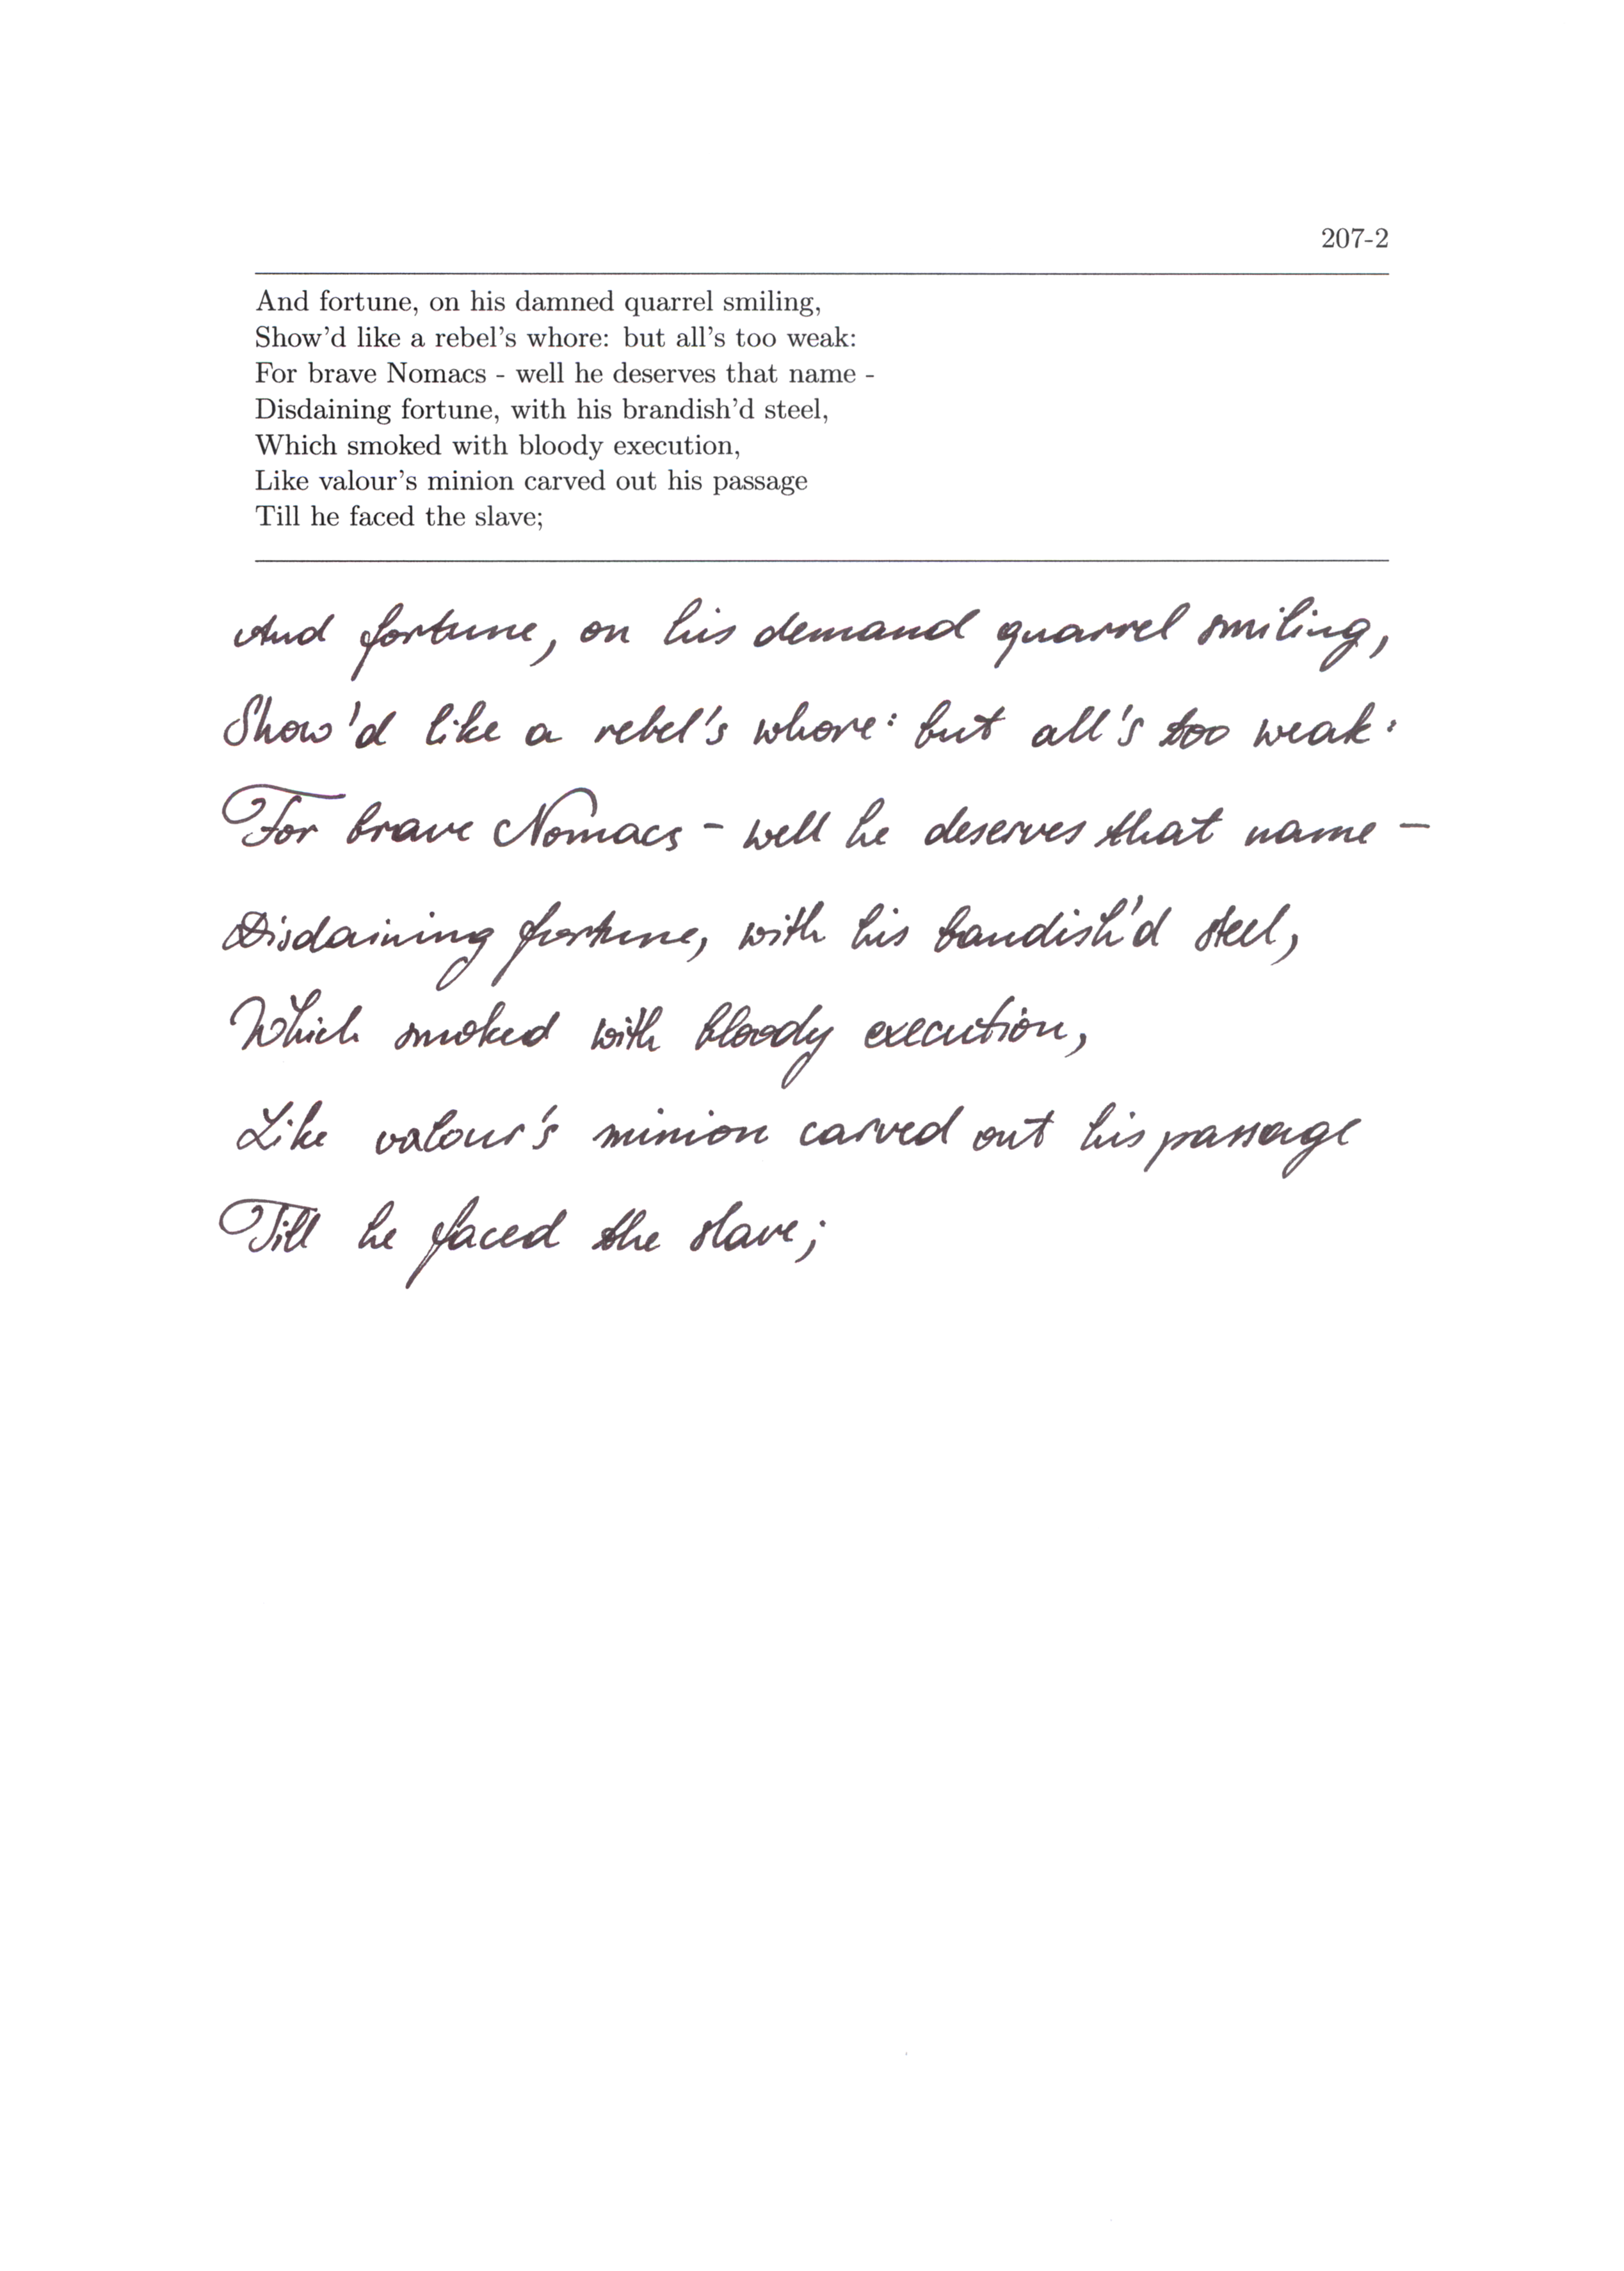 207-2
And fortune, on his damned quarrel smiling,
Show'd like a rebel's whore: but all's too weak:
For brave Nomacs - well he deserves that name -
Disdaining fortune, with his brandish'd steel,
Which smoked with bloody execution,
Like valour's minion carved out his passage
Till he faced the slave;
And fortune, on his demand quarrel smiling,
Show'd like a rebel's whore: but all's too weak:
For brave Nomacs - well he deserves that name -
Disdaining fortune, with his bandish'd steel,
Which smoked with bloody execution,
Like valour's minion carved out his passage
Till he faced the slave;